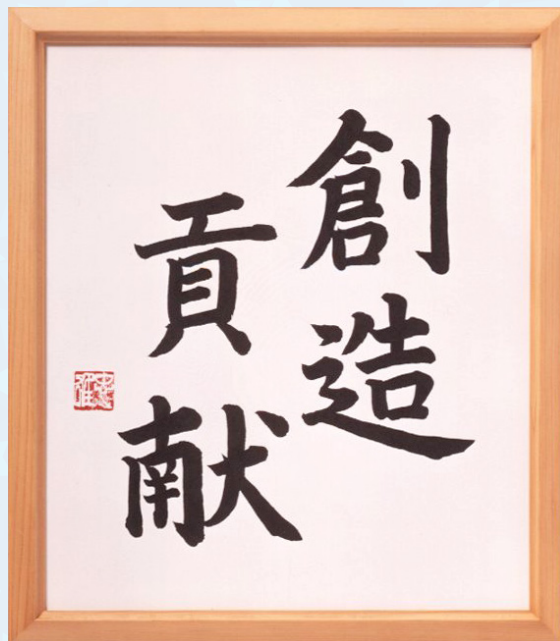 創造
貢献